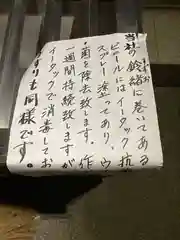 当社の鈴緒に巻いてある
ビニールにはイータック抗
スプレー塗ってあり、ウ
・菌を除去致します。作
一週間持続致しますが
イータックで消毒してお
すりも同様です。